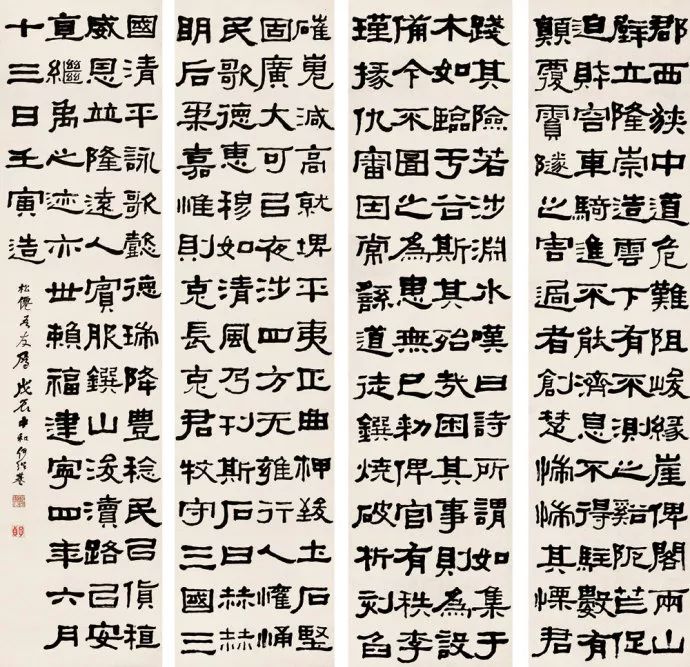 郡西狹中道危難阻峻緣崖俾閣兩山
壁立隆崇造雲下有不測之谿阨芒促
迫財容車騎進不能濟息不得駐數有
顛覆霣隧之害過者創楚惴惴其慄君
踐其險若涉淵氷嘆曰詩所謂如集于
木如臨于谷斯其殆哉困其事則為設
備今不圖之為患無已勑俾官有秩李
瑾掾仇審因常繇道徒鐉燒破析刻臽
磪嵬減高就埤平夷正曲柙致土石堅
固廣大可以夜涉四方无雍行人懽悀
民歌德惠穆如清風乃刊斯石曰赫赫
明后柔嘉惟則克長克君牧守三國三
國清平詠歌懿德瑞降豊稔民以貨稙
威恩並隆遠人賓服鐉山浚瀆路以安
直繼禹之迹亦世賴福建寧四年六月
十三日壬寅造
松僊 友 戊辰中和何紹基